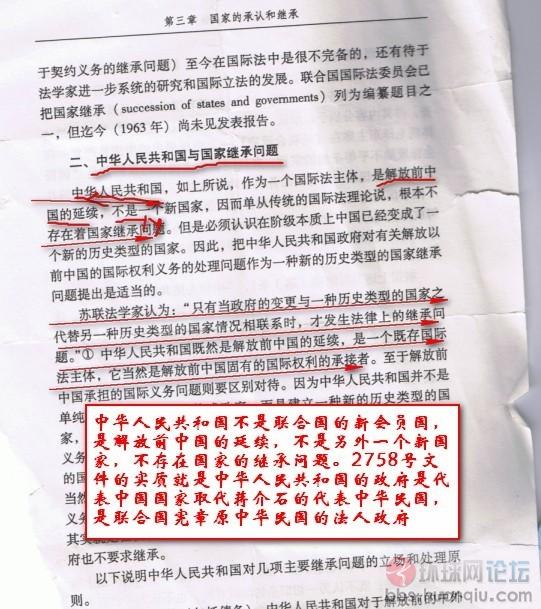 第三章　国家的承认和继承
于契约义务的继承问题）至今在国际法中是很不完备的，还有待于
法学家进一步系统的研究和国际立法的发展。联合国国际法委员会已
把国家继承（succession of states and governments）列为编纂题目之
一，但迄今（1963 年）尚未见发表报告。
二、中华人民共和国与国家继承问题
中华人民共和国，如上所说，作为一个国际法主体，是解放前中
国的延续，不是一个新国家，因而单从传统的国际法理论说，根本不
存在着国家继承问题。但是必须认识在阶级本质上中国已经变成了一
个新的历史类型的国家。因此，把中华人民共和国政府对有关解放以
前中国的国际权利义务的处理问题作为一种新的历史类型的国家继承
问题提出是适当的。
苏联法学家认为：“只有当政府的变更与一种历史类型的国家之
代替另一种历史类型的国家情况相联系时，才发生法律上的继承问
题。”① 中华人民共和国既然是解放前中国的延续，是一个既存国际
法主体，它当然是解放前中国固有的国际权利的承接者。至于解放前
中国承担的国际义务问题则要区别对待。因为中华人民共和国并不是
单纯
家，
义务
的国
当然
义务
其实就是
中华人民共和国不是联合国的新会员国，
是解放前中国的延续，不是另外一个新国
家，不存在国家的继承问题。2758号文
件的实质就是中华人民共和国的政府是代
表中国国家取代蒋介石的代表中华民国，
是联合国宪章原中华民国的法人政府
府也不要求继承。
以下说明中华人民共和国对几项主要继承问题的立场和处理原
则。
中华人民共和国对于解放前的中外
环球网论坛
bbs.huanqiu.com